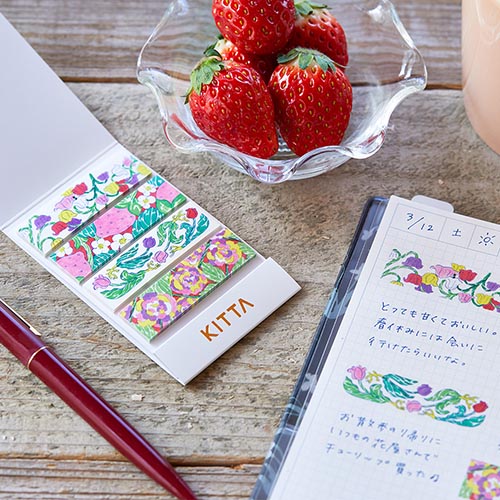 KITTA
3/12 土
とっても甘くておいしい。
春休みには食いに
行けたらいいな。
お散歩の帰り道に
いつもの花屋さんで
チューリップ買った♪